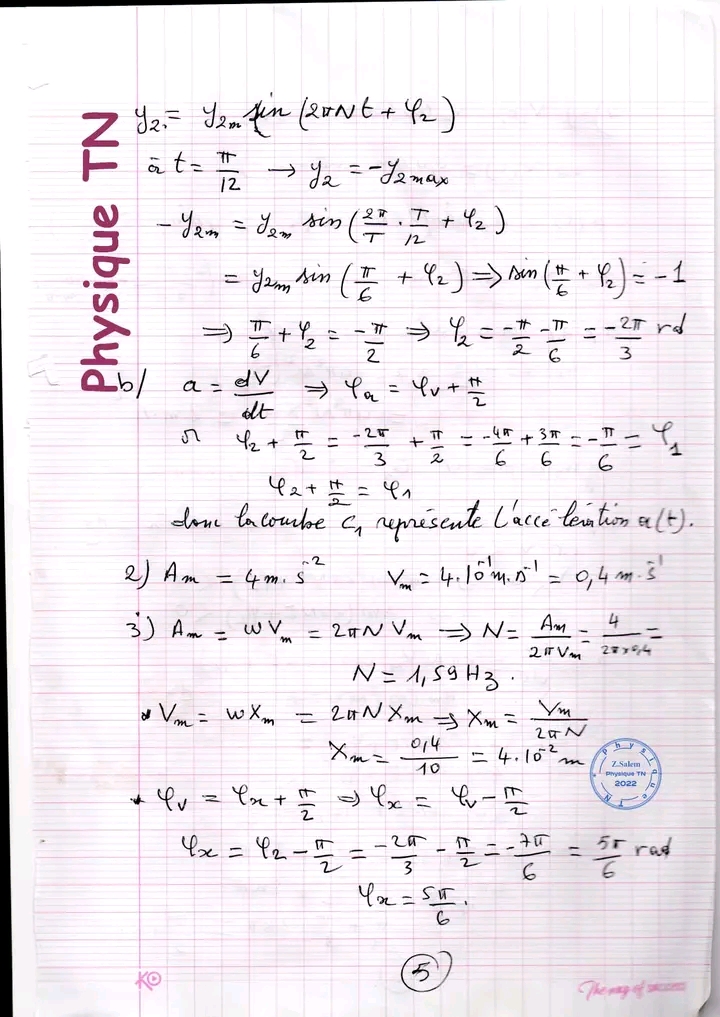 Physique TN
y₂ = y₂ₘ sin (2πNt + φ₂)
à t = π/12 → y₂ = -y₂max
- y₂ₘ = y₂ₘ sin (2π/T · T/12 + φ₂)
= y₂ₘ sin (π/6 + φ₂) ⇒ sin (π/6 + φ₂) = -1
⇒ π/6 + φ₂ = -π/2 ⇒ φ₂ = -π/2 - π/6 = -2π/3 rd
b/ a = dV/dt ⇒ φa = φv + π/2
or φ₂ + π/2 = -2π/3 + π/2 = -4π/6 + 3π/6 = -π/6 = φ₁
φ₂ + π/2 = φ₁
donc la courbe C₁ représente l'accélération a(t).
2) Am = 4 m.s⁻² Vm = 4.10⁻¹ m.s⁻¹ = 0,4 m.s⁻¹
3) Am = wVm = 2πN Vm ⇒ N = Am/2πVm = 4/2π×0,4 =
N = 1,59 Hz.
* Vm = wXm = 2πN Xm ⇒ Xm = Vm/2πN
Xm = 0,4/10 = 4.10⁻² m
Physique TN
Z.Salem
Physique TN
2022
* φv = φx + π/2 ⇒ φx = φv - π/2
φx = φ₂ - π/2 = -2π/3 - π/2 = -7π/6 = 5π/6 rad
φx = 5π/6.
5
The way of success